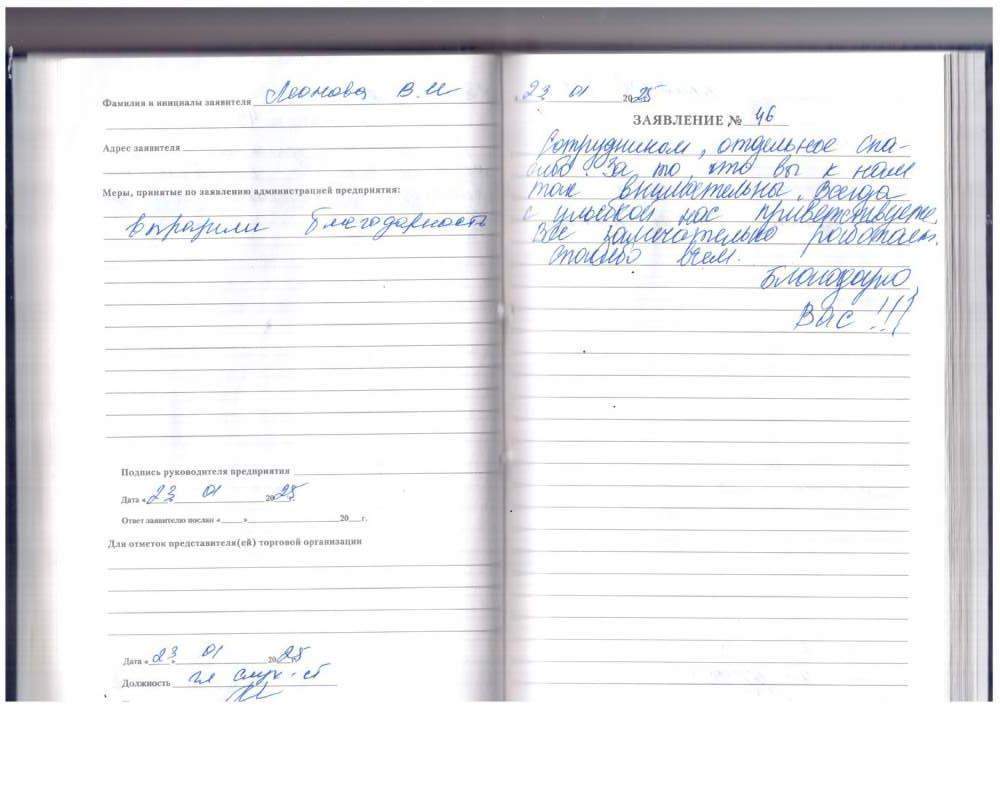 Фамилия и инициалы заявителя Леонова В.И
Адрес заявителя
Меры, принятые по заявлению администрацией предприятия:
выразили благодарность
Подпись руководителя предприятия
Дата «23 01 2025г.
Ответ заявителю послан «___»___20__г.
Для отметок представителя(ей) торговой организации
Дата «23» 01 2025
Должность гл
23 01 2025
ЗАЯВЛЕНИЕ № 46
Сотрудником, отдельное спа-
сибо. За то, что вы к нам
так внимательны. Всегда
с улыбкой нас приветствуете.
Все замечательно работает.
спасибо всем.
Благодарю
Вас !!!